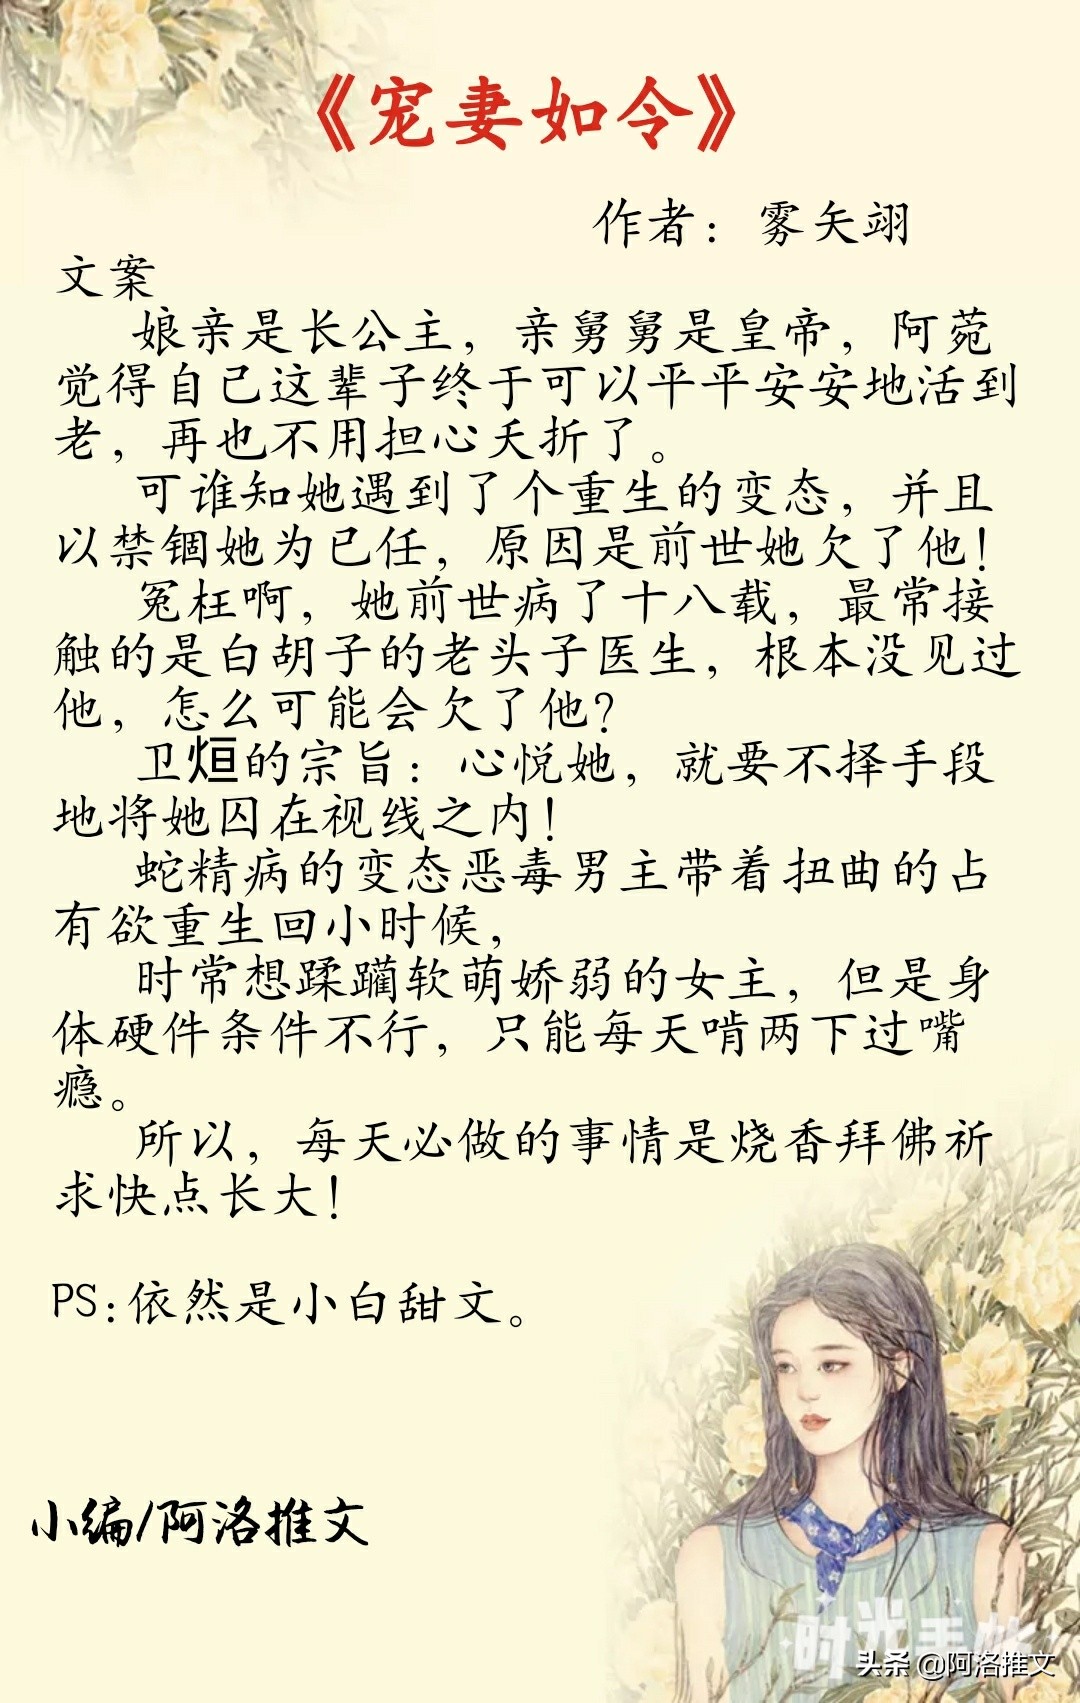 《宠妻如令》
作者：雾矢翊
文案
娘亲是长公主，亲舅舅是皇帝，阿菀
觉得自己这辈子终于可以平平安安地活到
老，再也不用担心夭折了。
可谁知她遇到了个重生的变态，并且
以禁锢她为已任，原因是前世她欠了他！
冤枉啊，她前世病了十八载，最常接
触的是白胡子的老头子医生，根本没见过
他，怎么可能会欠了他？
卫烜的宗旨：心悦她，就要不择手段
地将她囚在视线之内！
蛇精病的变态恶毒男主带着扭曲的占
有欲重生回小时候，
时常想蹂躏软萌娇弱的女主，但是身
体硬件条件不行，只能每天啃两下过嘴
瘾。
所以，每天必做的事情是烧香拜佛祈
求快点长大！
PS:依然是小白甜文。
小编/阿洛推文
时光手帐
头条 @阿洛推文